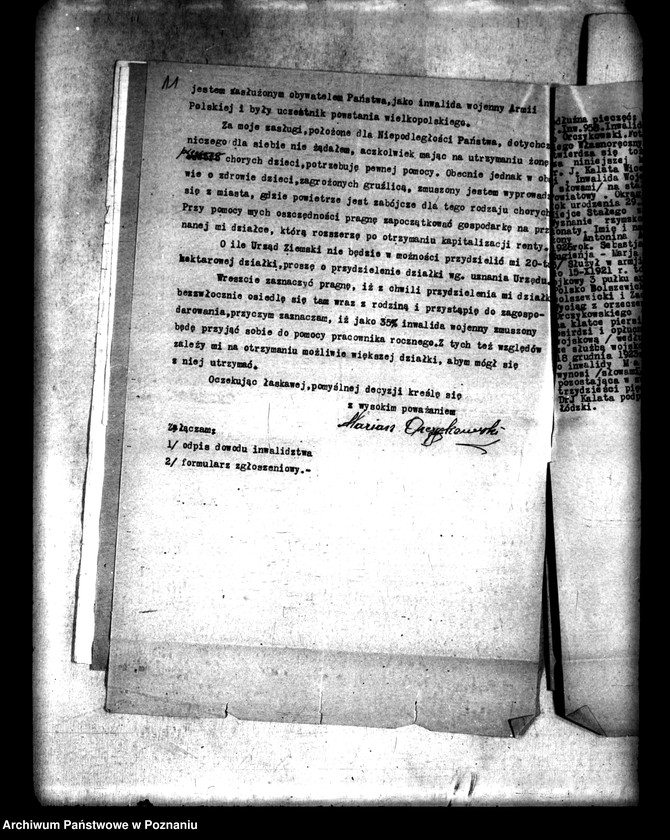 11
jestem zasłużonym obywatelem Państwa,jako inwalida wojenny Armii
Polskiej i były uczestnik powstania wielkopolskiego.
Za moje zasługi,położone dla Niepodległości Państwa, dotychcz
niczego dla siebie nie żądałem, aczkolwiek mając na utrzymaniu żonę
chorych dzieci,potrzebuję pewnej pomocy. Obecnie jednak w ob
wie o zdrowie dzieci,zagrożonych gruźlicą, zmuszony jestem wyprowadz
się z miasta, gdzie powietrze jest zabójcze dla tego rodzaju chorych
Przy pomocy mych oszczędności pragnę zapoczątkować gospodarkę na prz
nanej mi działce, którą rozszerzę po otrzymaniu kapitalizacji renty.
O ile Urząd Ziemski nie będzie w możności przydzielić mi 20-t
hektarowej działki,proszę o przydzielenie działki wg. uznania Urzędu.
Wreszcie zaznaczyć pragnę, iż z chwili przydzielenia mi działk
bezzwłocznie osiedlę się tam wraz z rodziną i przystąpię do zagospo-
darowania,przyczym zaznaczam, iż jako 35% inwalida wojenny zmuszony
będę przyjąć sobie do pomocy pracownika rocznego.Z tych też względów
zależy mi na otrzymaniu możliwie większej działki, abym mógł się
z niej utrzymać.
Oczekując łaskawej,pomyślnej decyzji kreślę się
z wysokim poważaniem
Marian Orczykowski
Załączam;
1/ odpis dowodu inwalidztwa
2/ formularz zgłoszeniowy.-
dłużna pieczęć;
Inw.958.Inwalid
Orczykowski.Fot
iego własnoręczny
wierdza się tok
a niniejszej
J. Kalata Wice
Inwalida Woj
słowami/ na sta
owiatowy. Okrąg
ok urodzenia 29.
iejce Stałego
yznanie rzymsko
onaty. Imię i na
ony Antonina
925rok. Sebastja
ugienja - Marja
/ Służył w armji
o 15-X1921 r. to
jkowy 3 pułku ar
olsko Bolszewick
olszewicki i Zac
yciąg z orzecze
rczykowskiego
a klatce piersi
zwirdzi i opłuc
ojskową / wedłu
e służbą wojsk
6 grudnia 1923
o inwalidy Ma
wynosi /słowami
pozostająca w
trzydzieści pię
DrJ Kalata podp
Łódzki.
Archiwum Państwowe w Poznaniu